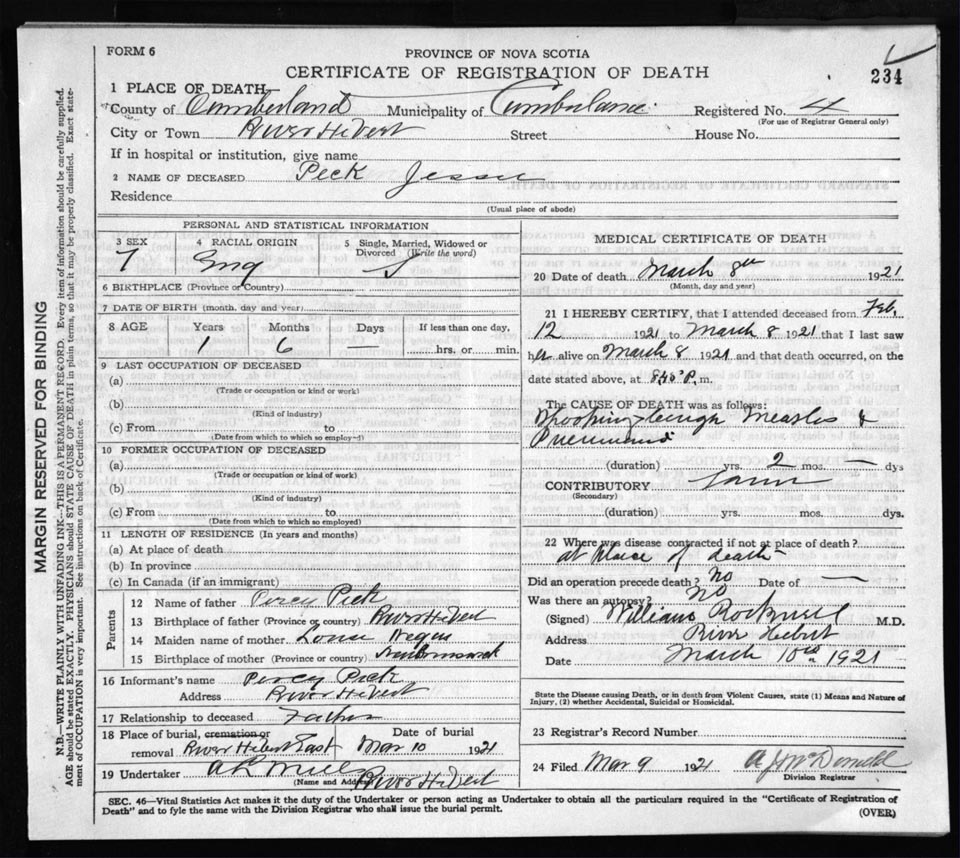 FORM 6
PROVINCE OF NOVA SCOTIA
CERTIFICATE OF REGISTRATION OF DEATH
234
1 PLACE OF DEATH
County of Cumberland Municipality of Cumberland Registered No. 4
(For use of Registrar General only)
City or Town River Hebert Street House No.
If in hospital or institution, give name
2 NAME OF DECEASED Peck Jessie
Residence
(Usual place of abode)
PERSONAL AND STATISTICAL INFORMATION
3 SEX 4 RACIAL ORIGIN 5 Single, Married, Widowed or Divorced (Write the word)
F Eng S
6 BIRTHPLACE (Province or Country)
7 DATE OF BIRTH (month, day and year)
8 AGE Years Months Days If less than one day,
1 6 — hrs. or min.
9 LAST OCCUPATION OF DECEASED
(a)
(Trade or occupation or kind or work)
(b)
(Kind of industry)
(c) From to
(Date from which to which so employed)
10 FORMER OCCUPATION OF DECEASED
(a)
(Trade or occupation or kind of work)
(b)
(Kind of industry)
(c) From to
(Date from which to which so employed)
11 LENGTH OF RESIDENCE (In years and months)
(a) At place of death
(b) In province
(c) In Canada (if an immigrant)
Parents
12 Name of father Percy Peck
13 Birthplace of father (Province or country) River Hebert
14 Maiden name of mother
15 Birthplace of mother (Province or country) New Brunswick
16 Informant's name Percy Peck
Address River Hebert
17 Relationship to deceased Father
18 Place of burial, cremation or Date of burial
removal River Hebert East Mar 10 1921
19 Undertaker
(Name and Address) River Hebert
MEDICAL CERTIFICATE OF DEATH
20 Date of death March 8th 1921
(Month, day and year)
21 I HEREBY CERTIFY, that I attended deceased from Feb.
12 1921 to March 8 1921 that I last saw
her alive on March 8 1921 and that death occurred, on the
date stated above, at 8,45 P. m.
The CAUSE OF DEATH was as follows:
Whooping-Cough Measles &
Pneumonia
(duration) yrs. 2 mos. — dys
CONTRIBUTORY Same
(Secondary)
(duration) yrs. mos. dys.
22 Where was disease contracted if not at place of death?
at place of death
Did an operation precede death? No Date of —
Was there an autopsy? No
(Signed) William Rockwell M.D.
Address River Hebert
Date March 10th 1921
State the Disease causing Death, or in death from Violent Causes, state (1) Means and Nature of
Injury, (2) whether Accidental, Suicidal or Homicidal.
23 Registrar's Record Number
24 Filed Mar 9 1921 McDonald
Division Registrar
SEC. 46—Vital Statistics Act makes it the duty of the Undertaker or person acting as Undertaker to obtain all the particulars required in the "Certificate of Registration of
Death" and to fyle the same with the Division Registrar who shall issue the burial permit.
(OVER)
MARGIN RESERVED FOR BINDING
N.B.—WRITE PLAINLY WITH UNFADING INK—THIS IS A PERMANENT RECORD. Every item of information should be carefully supplied.
AGE should be stated EXACTLY. PHYSICIANS should STATE CAUSE OF DEATH in plain terms, so that it may be properly classified. Exact state-
ment of OCCUPATION is very important. See instructions on back of Certificate.